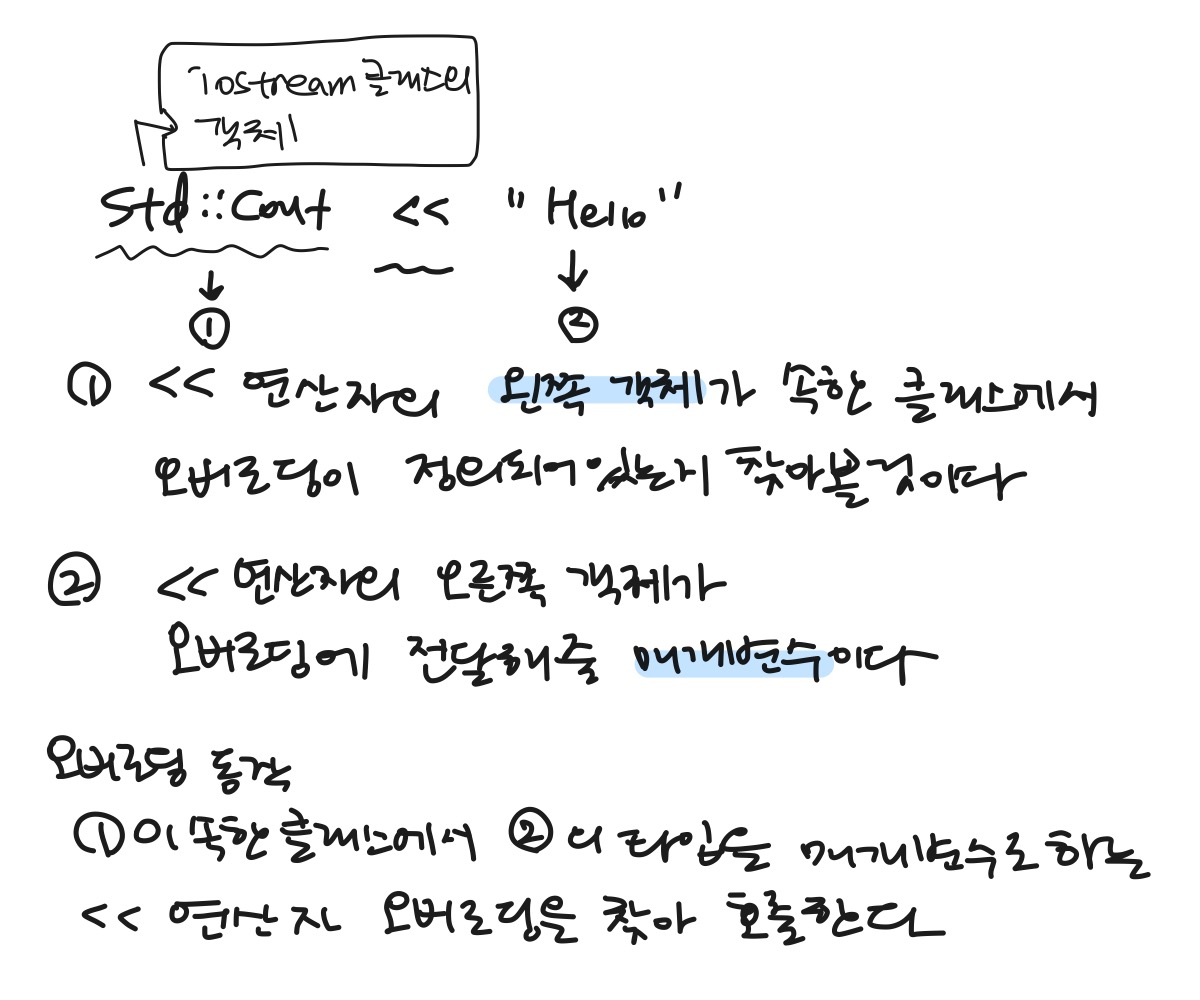 iostream 클래스의
객체
Std::Cout << "Hello"
① ②
① << 연산자의 왼쪽 객체가 속한 클래스에서
오버로딩이 정의되어있는지 찾아볼것이다
② << 연산자의 오른쪽 객체가
오버로딩에 전달해줄 매개변수이다
오버로딩 동작
①이 속한클래스에서 ②의 타입을 매개변수로 하는
<< 연산자 오버로딩을 찾아 호출한다